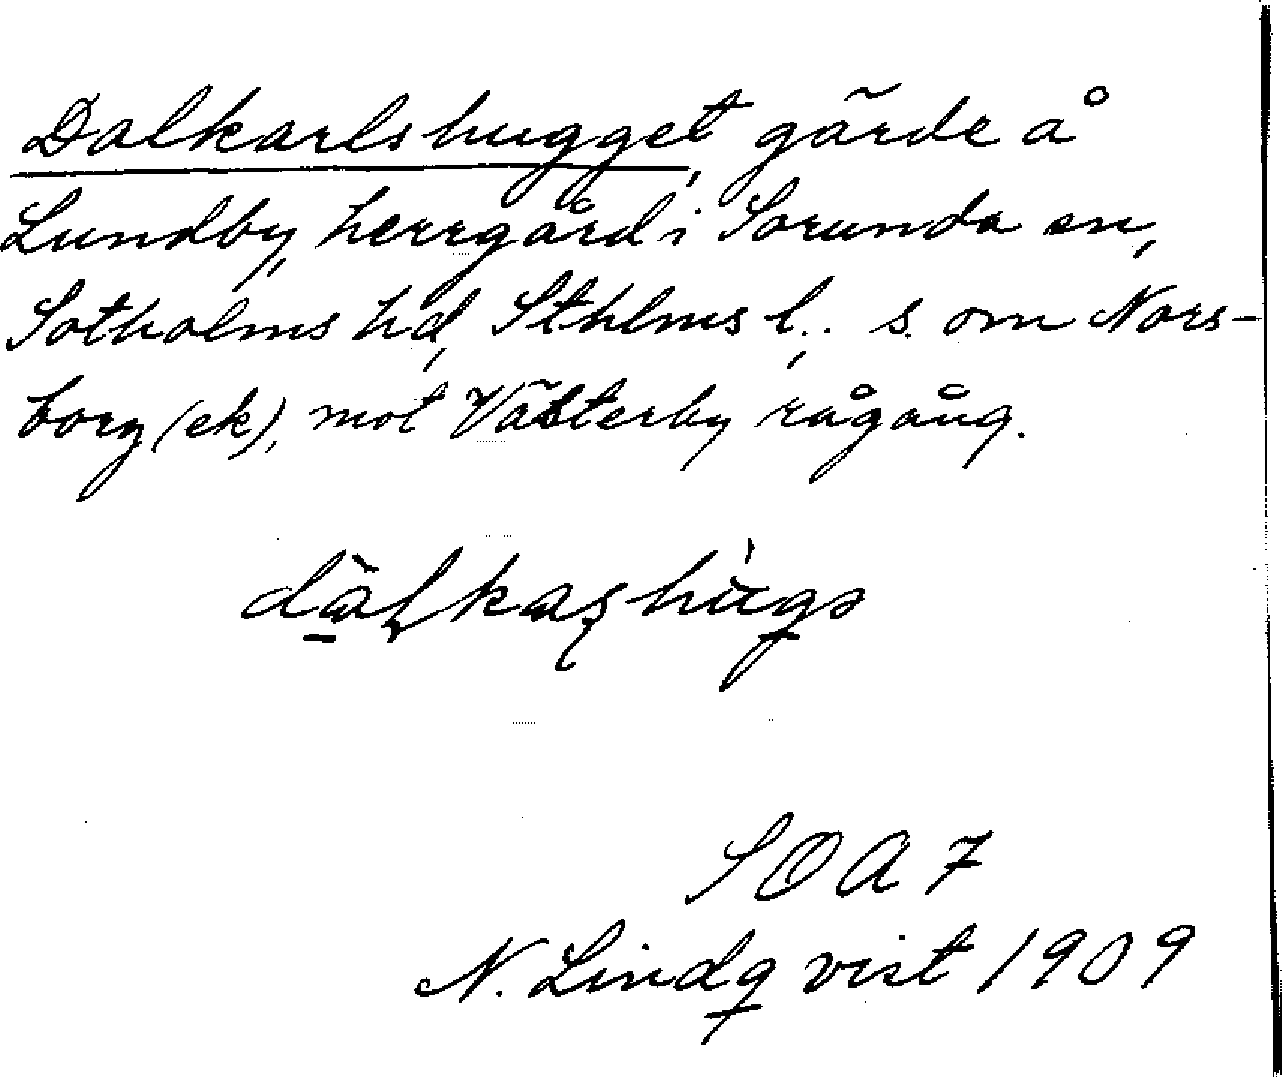 Dalkarlshugget, gärde å
Lundby, herrgård i Sorunda sn,
Sotholms hd, Sthlms l., s. om Nors-
borg (ek), mot Västerby rågång.
SOA 7
N. Lindqvist 1909